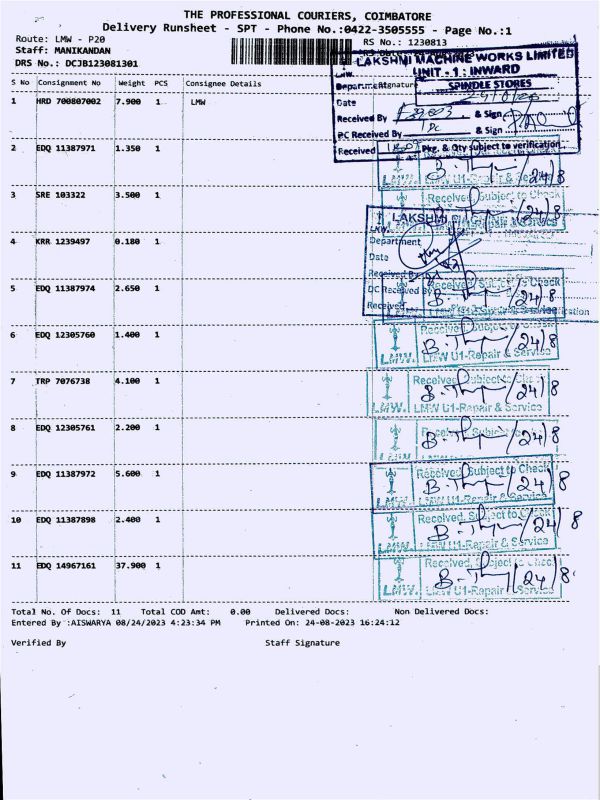 THE PROFESSIONAL COURIERS, COIMBATORE
Delivery Runsheet - SPT - Phone No.:0422-3505555 - Page No.:1
Route: LMW - P20
RS No.: 1230813
Staff: MANIKANDAN
DRS No.: DCJB123081301
LAKSHMI MACHINE WORKS LIMITED
UNIT - 1 : INWARD
Department SPINDLE STORES
Signature
Date
Received By & Sign
PC Received By & Sign
Received Pkg. & Qty subject to verification
S No Consignment No Weight PCS Consignee Details
1 HRD 700807002 7.900 1 LMW
2 EDQ 11387971 1.350 1
LMW. LMW U1-Repair & Service
B. 24/8
3 SRE 103322 3.500 1
Received, Subject to Check
B. 24/8
LAKSHMI
4 KRR 1239497 0.180 1
Department
Date
Received By
5 EDQ 11387974 2.650 1
DC Received By
Received
B. 24/8
6 EDQ 12305760 1.400 1
Received, Subject to
B. 24/8
LMW. LMW U1-Repair & Service
7 TRP 7076738 4.100 1
Received, Subject to Check
B. 24/8
LMW. LMW U1-Repair & Service
8 EDQ 12305761 2.200 1
B. 24/8
LMW. LMW U1-Repair & Service
9 EDQ 11387972 5.600 1
Received, Subject to Check
B. 24/8
LMW. LMW U1-Repair & Service
10 EDQ 11387898 2.400 1
Received, Subject to Check
B. 24/8
LMW. LMW U1-Repair & Service
11 EDQ 14967161 37.900 1
Received, Subject to Check
B. 24/8
LMW. LMW U1-Repair & Service
Total No. Of Docs: 11 Total COD Amt: 0.00 Delivered Docs: Non Delivered Docs:
Entered By :AISWARYA 08/24/2023 4:23:34 PM Printed On: 24-08-2023 16:24:12
Verified By Staff Signature